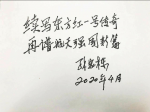 续写东方红一号传奇
再谱航天强国新篇
2020年4月